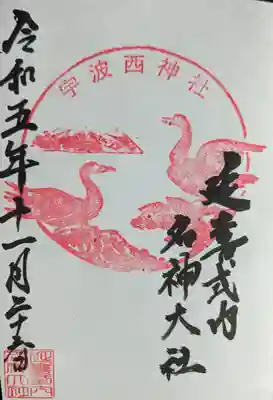 宇波西神社
延喜式内
名神大社
令和五年十一月二十五日